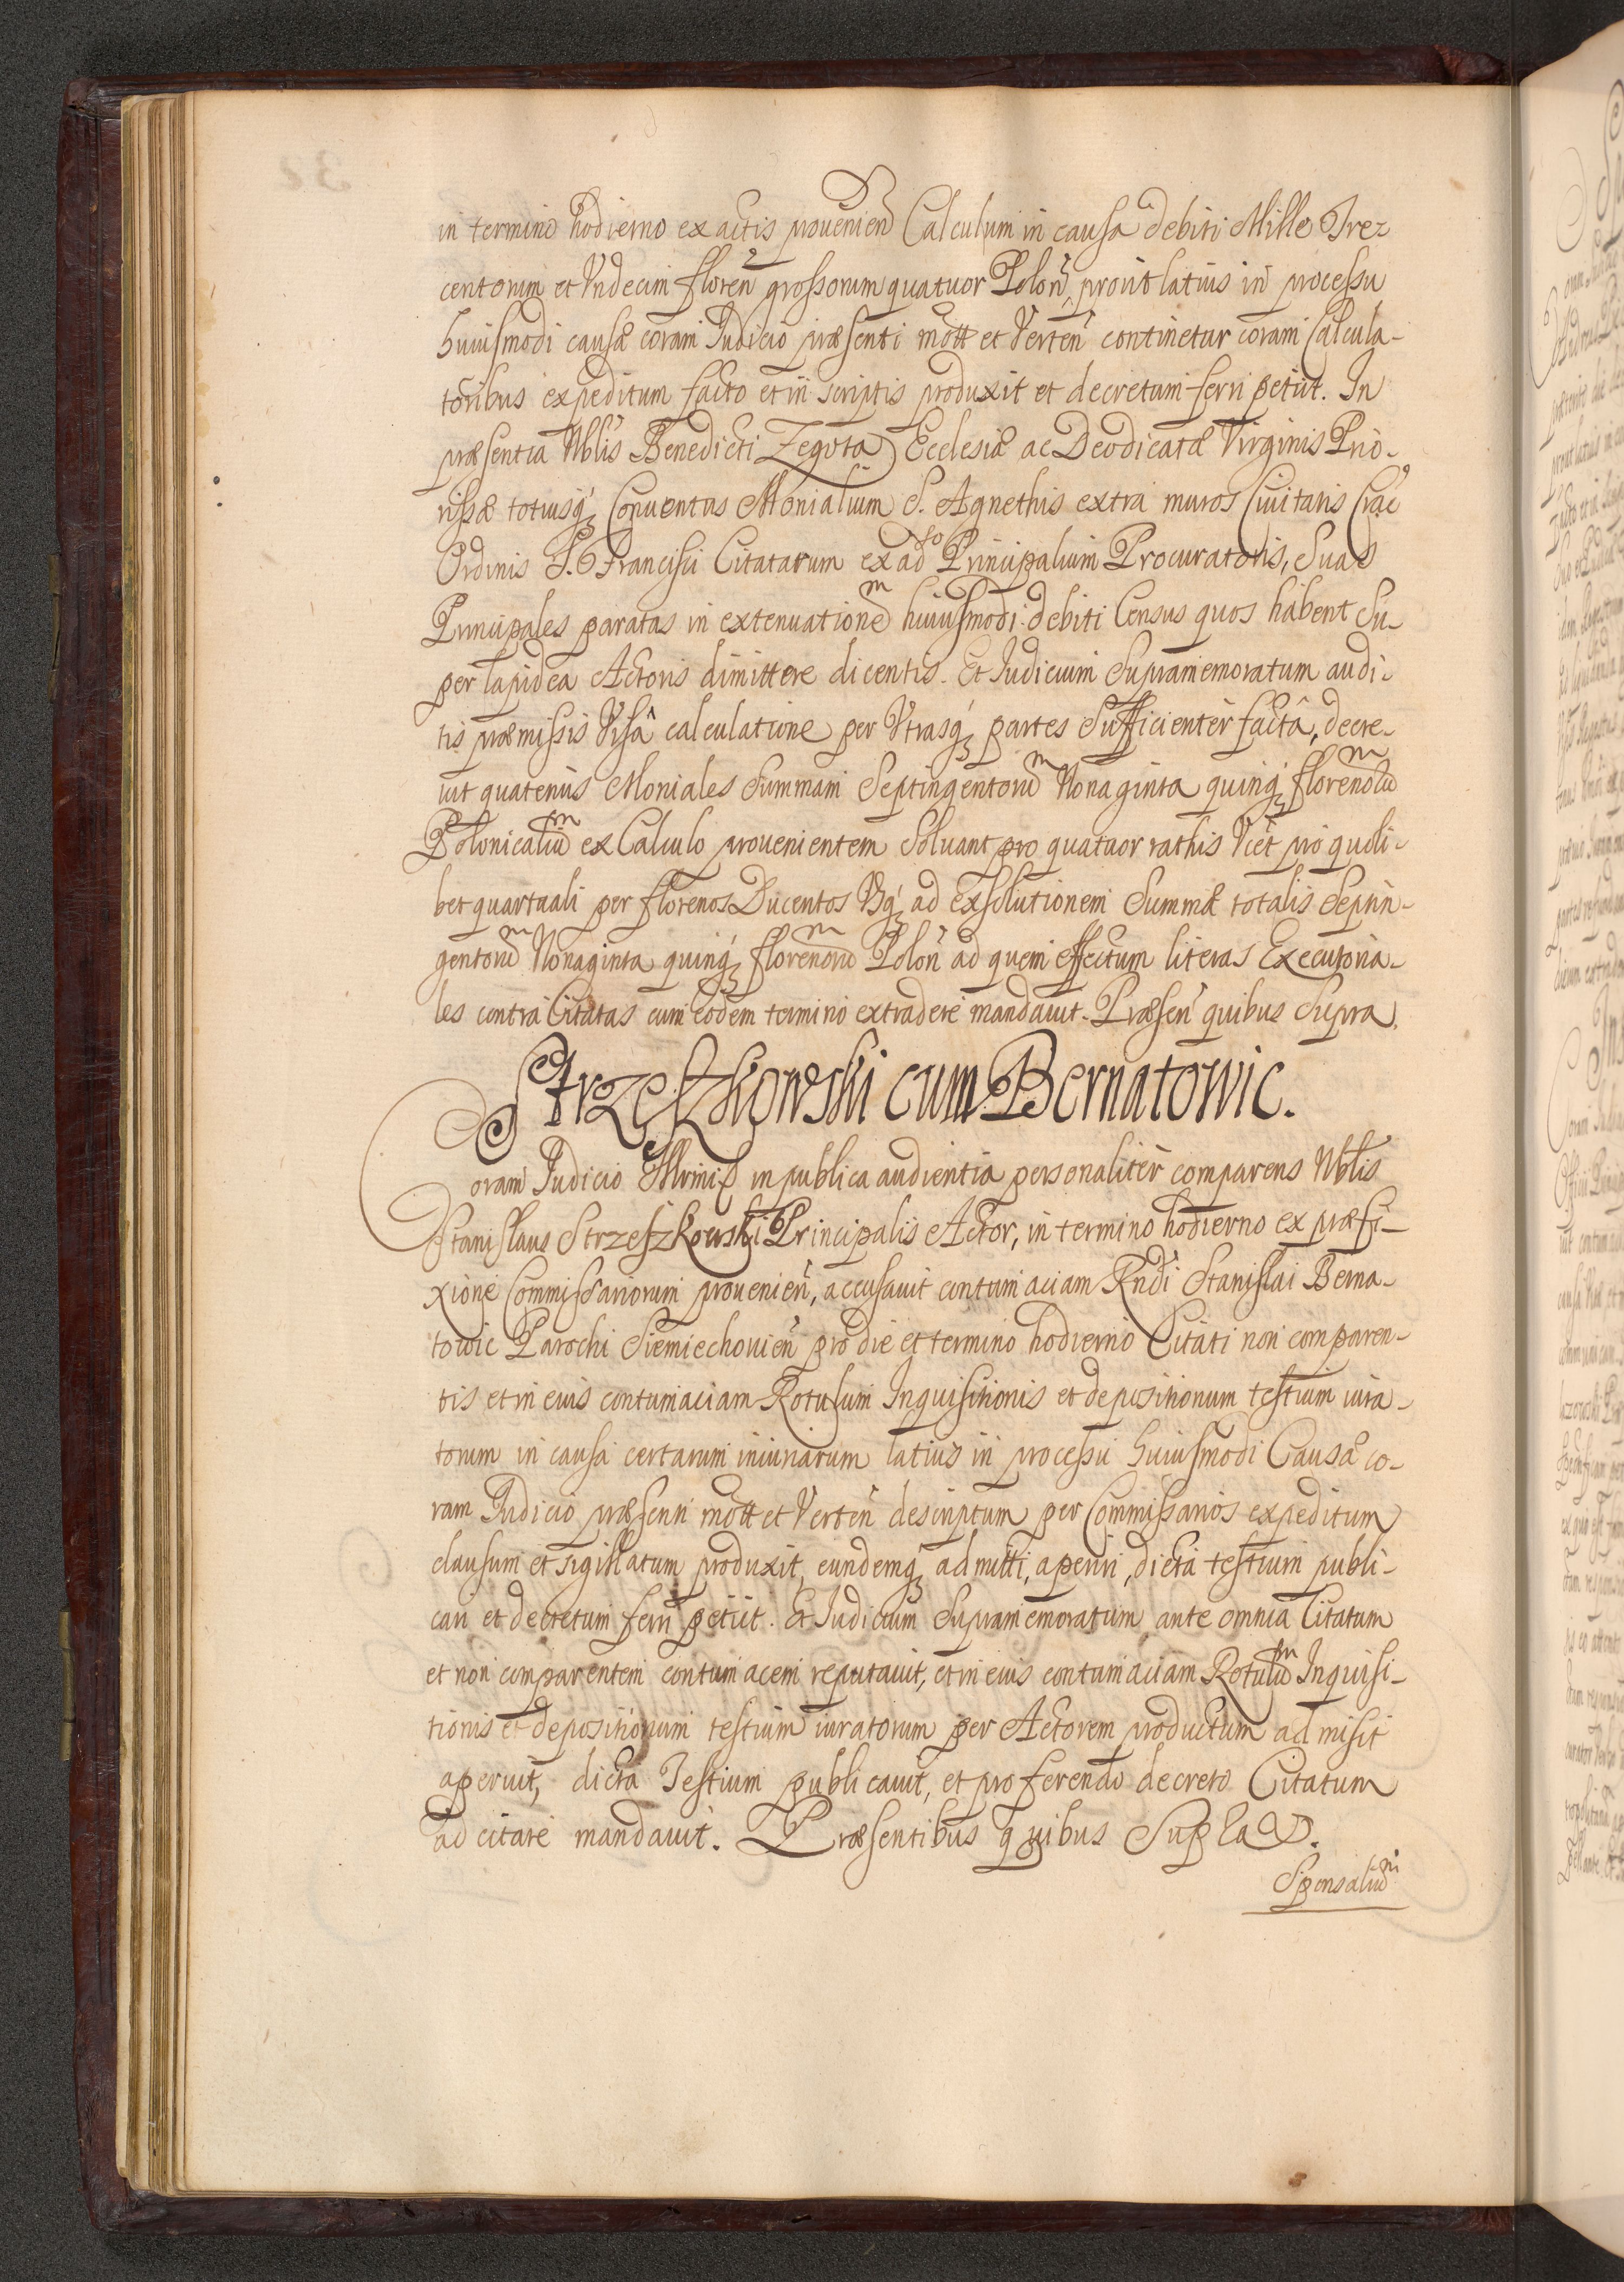 in termino hodierno ex actis prouenieñ Calculum in causa debiti Mille Trez
centorum et Vndecim floreñ grossorum quatuor Poloñ, prout latius in processu
huiusmodi causæ coram Iudicio præsenti mott et Verteñ continetur coram Calcula-
toribus expeditum facto et in scriptis produxit et decretum ferri petijt. In
præsentia Nblis Benedicti Zegota Ecclesiæ ac Deodicatæ Virginis Prio-
rissæ totiusq; Conuentus Monialium S. Agnethis extra muros Ciuitatis Crac
Ordinis S. Francisci Citatarum ex ad Principalium Procuratoris, Suas
Principales paratas in extenuationem huiusmodi debiti Census quos habent Su-
per lapidea Actoris dimittere dicentis. Et Iudicium Supramemoratum audi-
tis præmissis Visâ calculatione per Vtrasq; partes Sufficienter factâ, decre-
uit quatenus Moniales Summam Septingentorum Nonaginta quinq; florenorum
Polonicalium ex Calculo prouenientem Soluant pro quatuor rathis Vict pro quoli-
bet quartuali per florenos Ducentos Vsq; ad exsolutionem Summæ totalis Septin-
gentorum Nonaginta quinq; florenorum Poloñ ad quem effectum literas Executoria-
les contra Citatas cum eodem termino extradere mandauit. Præseñ quibus Supra.
Strzeszkowski cum Bernatowic.
Coram Iudicio in publica audientia personaliter comparens Nblis
Stanislaus Strzeszkowski Principalis Actor, in termino hodierno ex præfi-
xione Commissariorum prouenieñ, accusauit contumaciam Rndi Stanislai Berna-
towic Parochi Siemiechouieñ pro die et termino hodierno Citati non comparen-
tis et in eius contumaciam Rotulum Inquisitionis et depositionum testium iura-
torum in causa certarum iniuriarum latius in processu huiusmodi Causæ co-
ram Iudicio præsenti mott et Verteñ descriptum per Commissarios expeditum
clausum et sigillatum produxit, eundemq; admitti, aperiri, dicta testium publi-
cari et decretum ferri petijt. Et Iudicium Supramemoratum ante omnia Citatum
et non comparentem contumacem reputauit, et in eius contumaciam Rotulum Inquisi-
tionis et depositionum testium iuratorum per Actorem productum admisit
aperuit, dicta Testium publicauit, et pro ferendo decreto Citatum
ad citare mandauit. Præsentibus quibus Supra.
Sponsalium